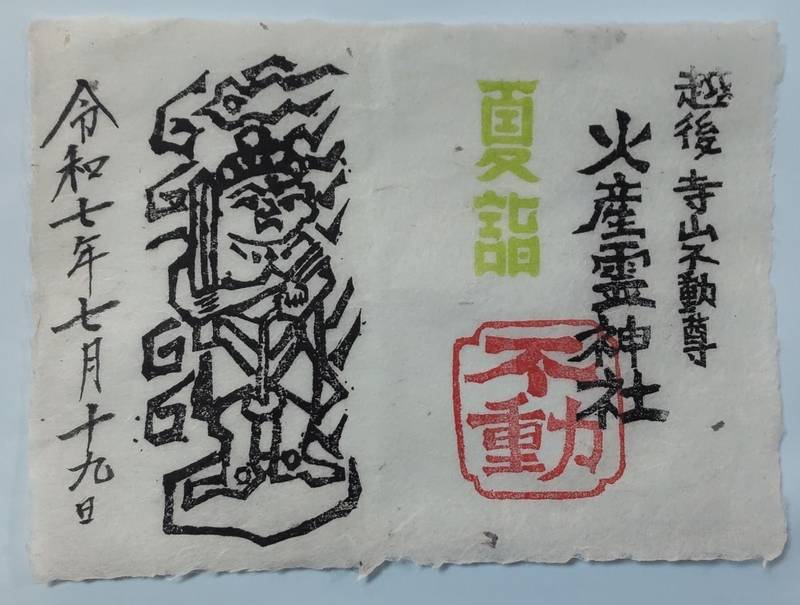 越後 寺山不動尊
火産霊神社
夏詣
不動
令和七年七月十九日